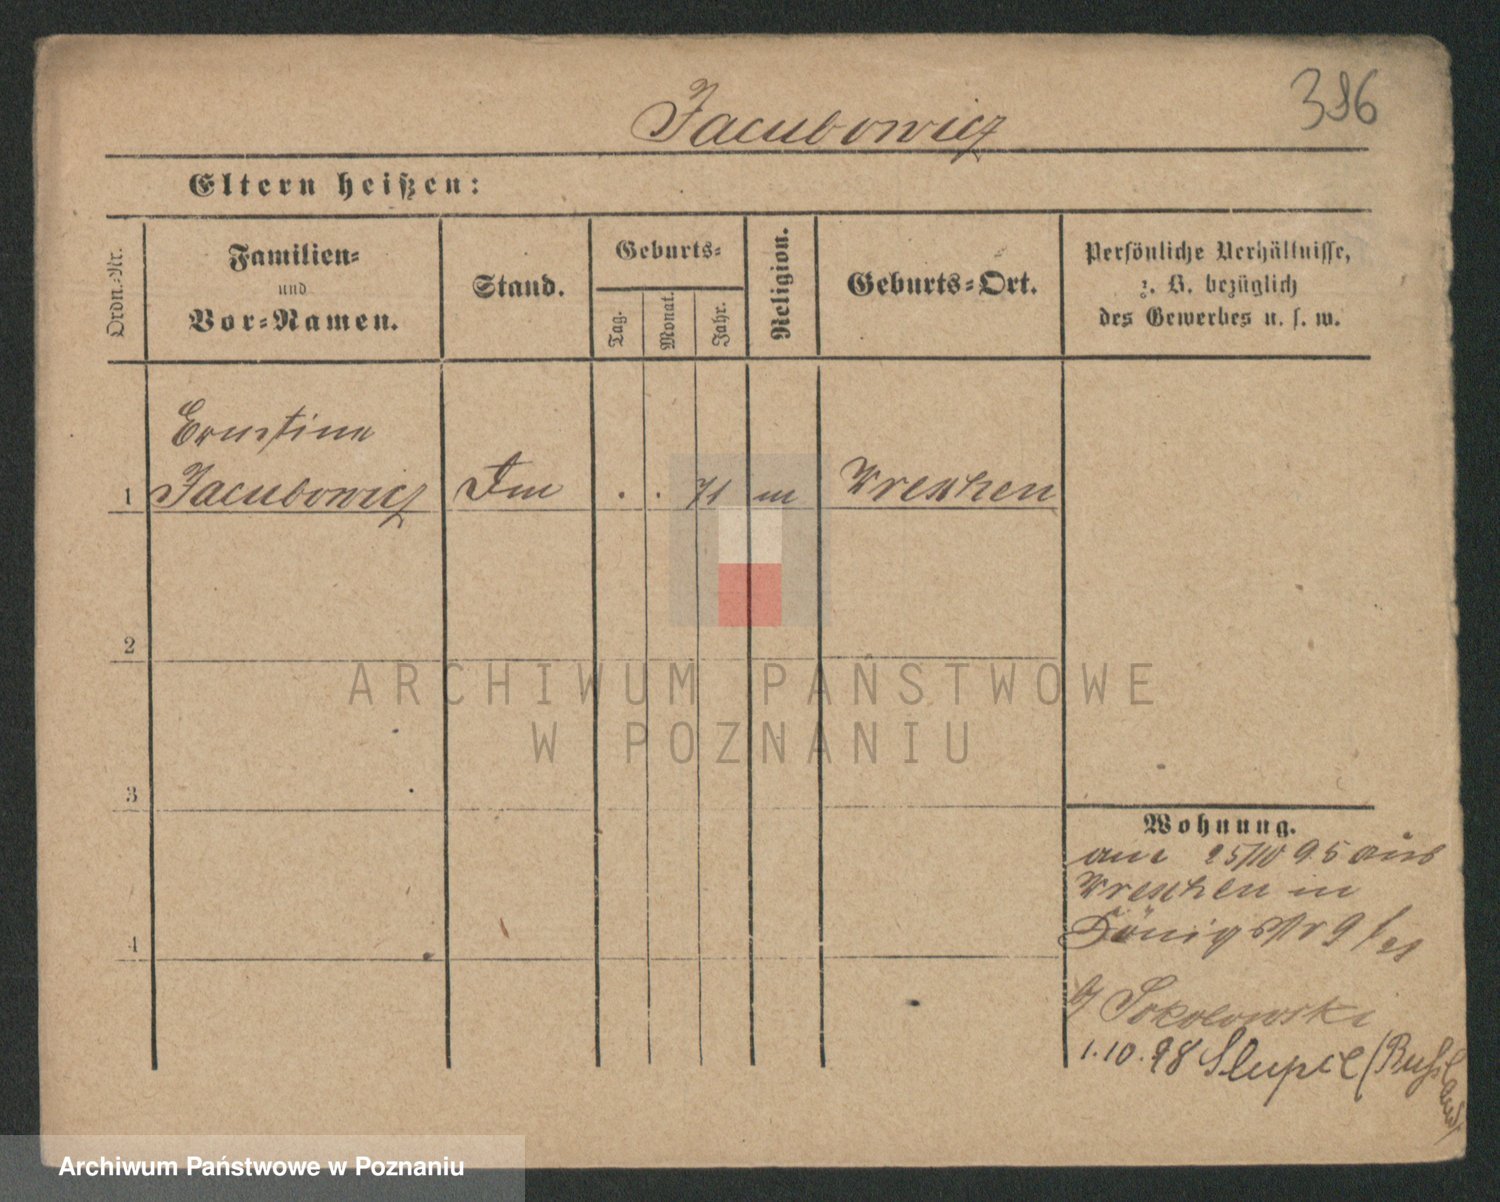 386
Jacubowicz
Eltern heißen:
Ordn.-Nr.
Familien-
und
Vor-Namen.
Stand.
Geburts-
Tag.
Monat.
Jahr.
Religion.
Geburts-Ort.
Persönliche Verhältnisse,
z. B. bezüglich
des Gewerbes u. s. w.
Ernstine
1 Jacubowicz . . 71 m Wreschen
2
3
4
Wohnung.
25/10 95 aus
Wreschen in
Königstr 9
b/ Sokolowski
1.10.98 Slupce (Rußland)
ARCHIWUM PAŃSTWOWE
W POZNANIU
Archiwum Państwowe w Poznaniu